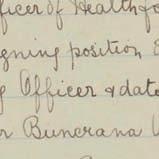 ficer of Health fo
igning position
g Officer & date
r Buncrana